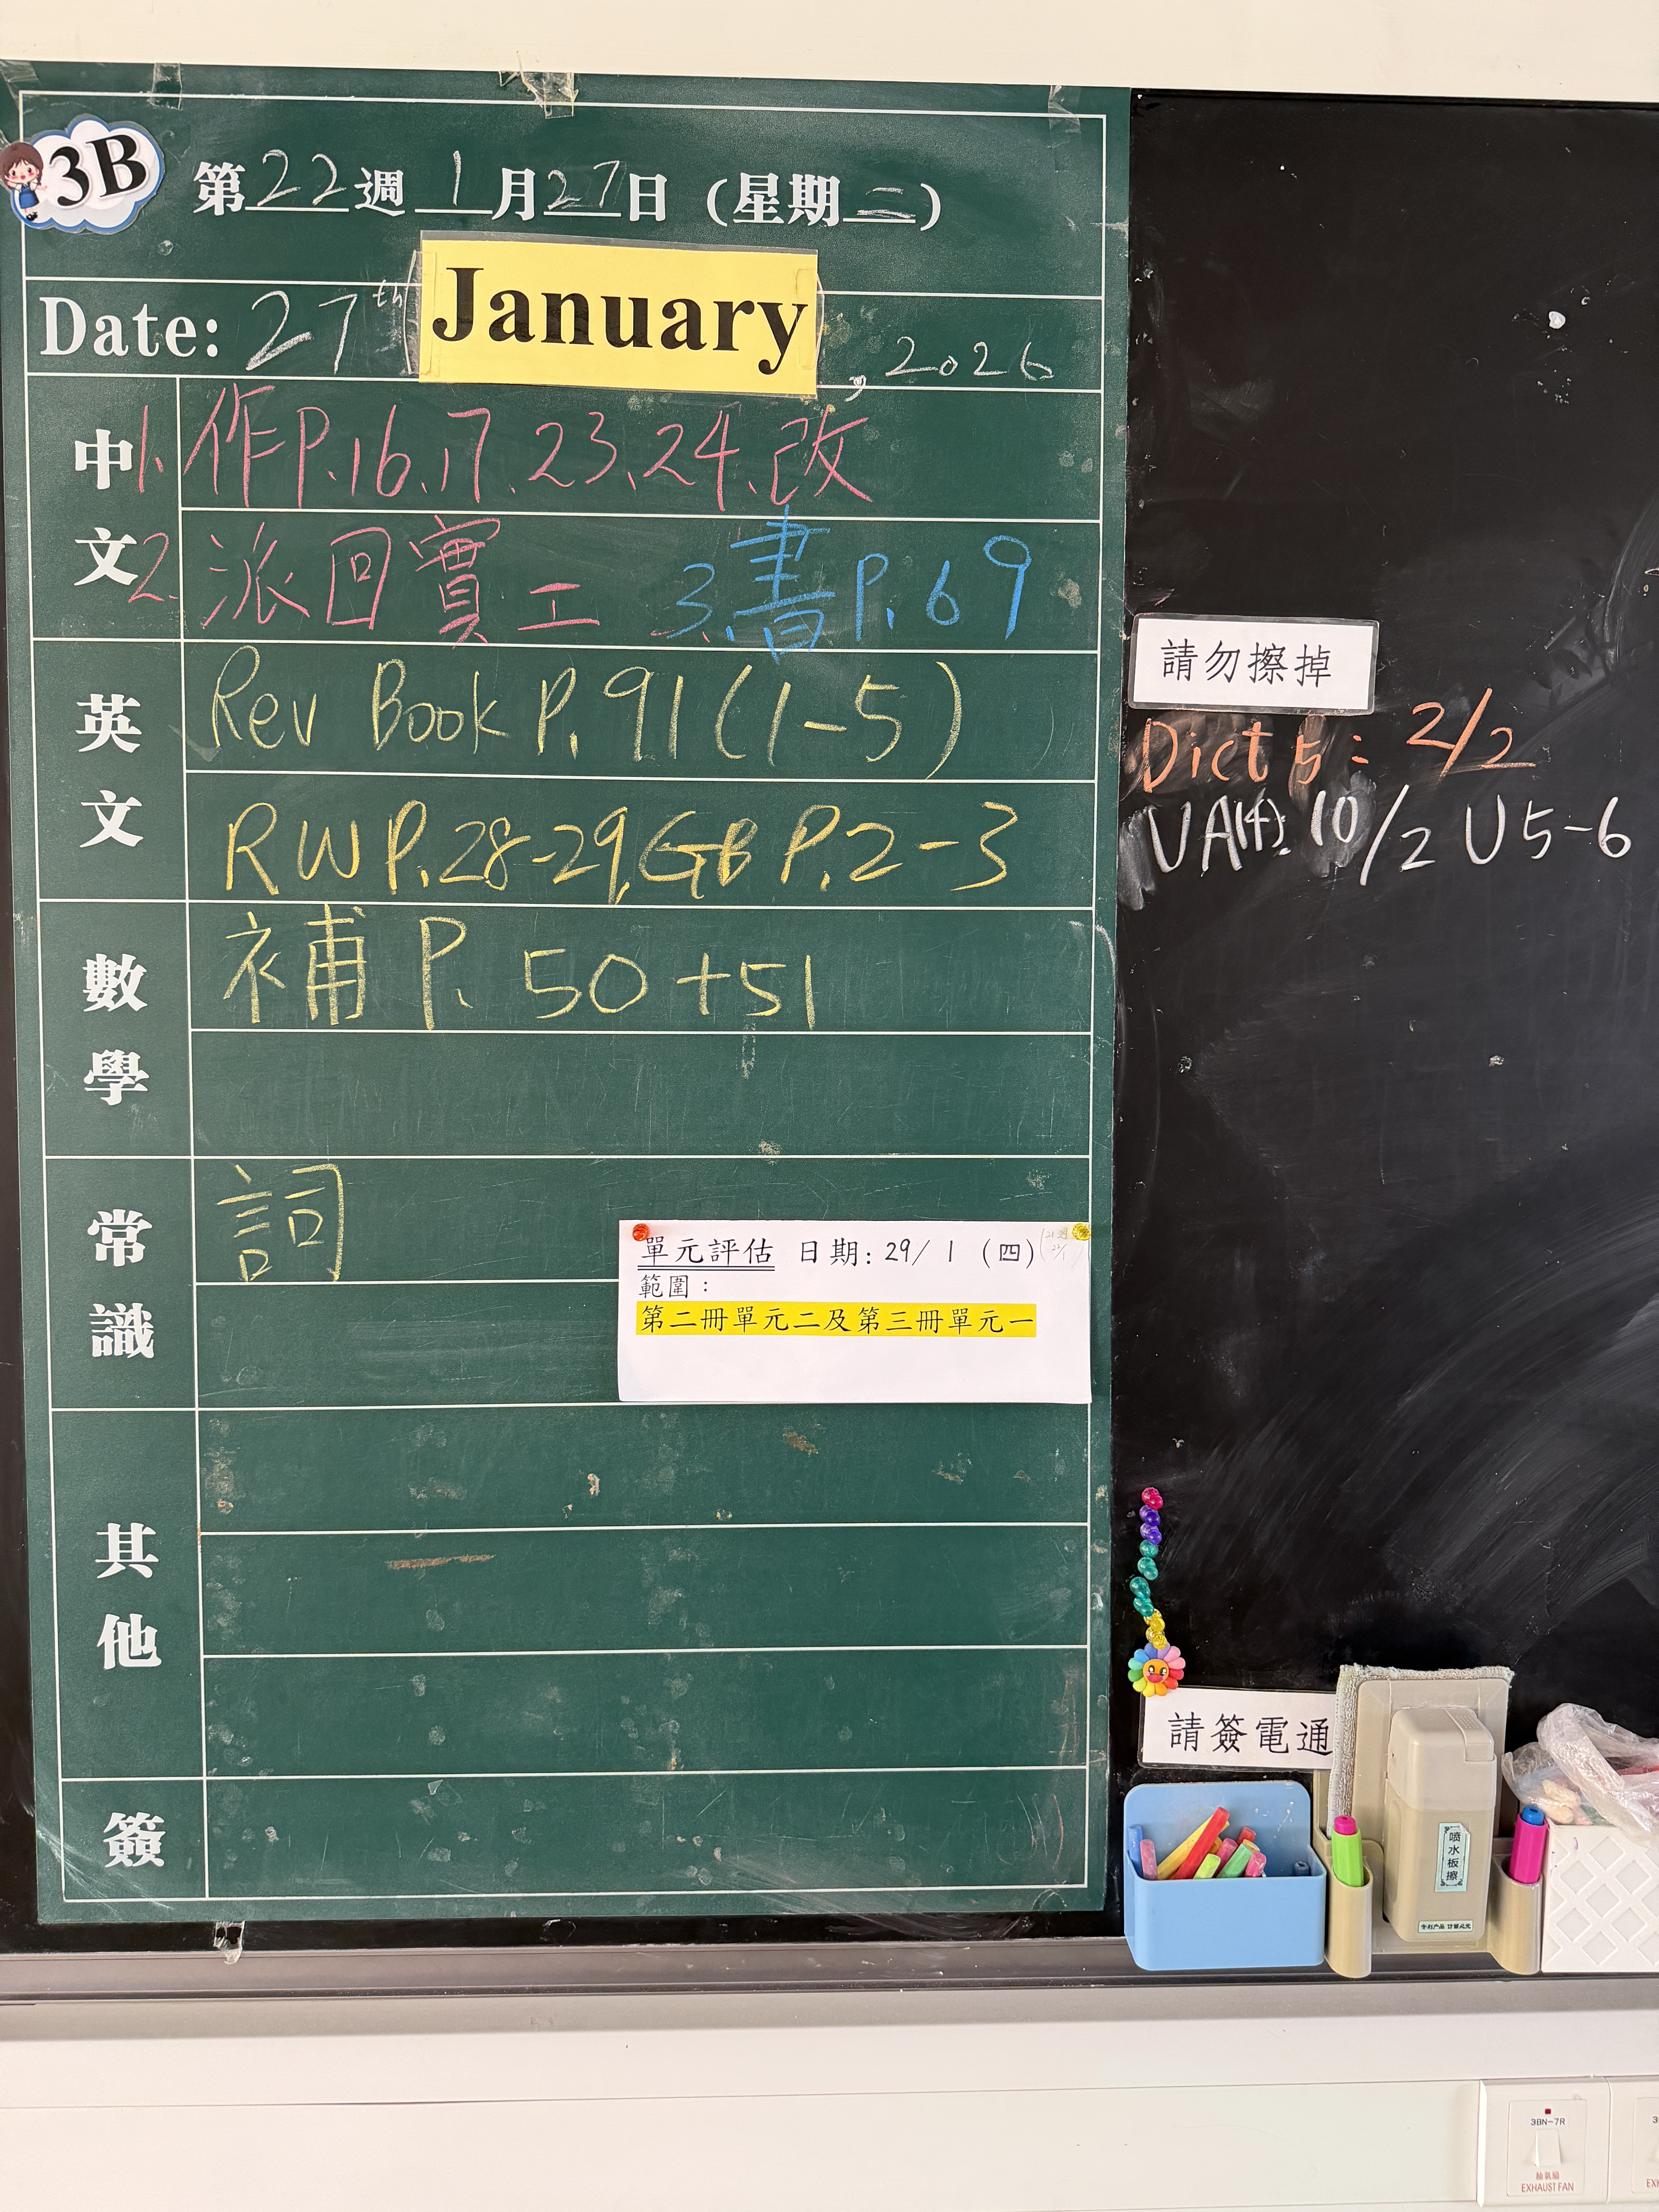 3B
第22週 1月27日 (星期二)
Date: 27th January, 2026
中文
1. 作P.16、17、23、24、改
2. 派回實工 3.書P.69
英文
Rev Book P.91 (1-5)
RW P.28-29, GB P.2-3
數學
補 P. 50+51
常識
詞
單元評估 日期: 29/1 (四)
範圍：
第二冊單元二及第三冊單元一
其他
簽
請勿擦掉
Dict 5: 2/2
UA(4): 10/2 U5-6
請簽電通
喷水板擦
专利产品 仿冒必究
3BN-7R
抽氣扇
EXHAUST FAN